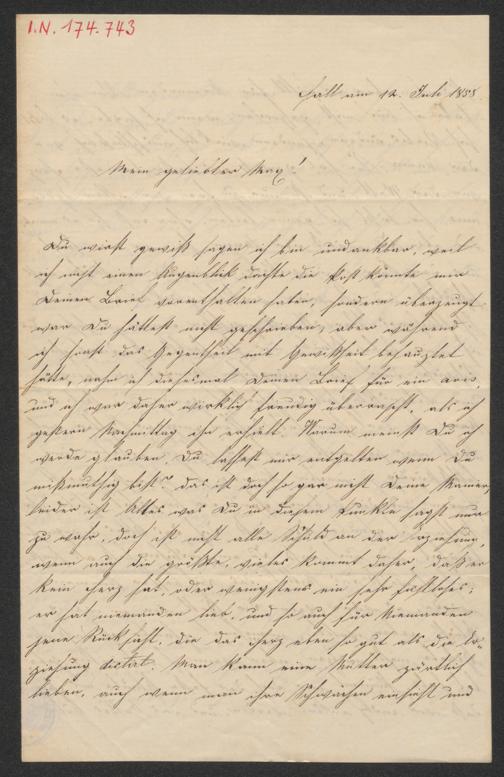 I.N. 174.743
Hall am 12. Juli 1855
Mein geliebter Max!
Du wirst gewiß sagen ich bin undankbar, weil
ich nicht einen Augenblick dachte die Post könnte mir
Deinen Brief vorenthalten haben, sondern überzeugt
war Du hättest nicht geschrieben, aber während
ich sonst das Gegentheil mit Gewißheit behauptet
hätte, nahm ich diesesmal Deinen Brief für ein
und ich war daher wirklich freudig überrascht, als ich
gestern Nachmittag ihn erhielt. Warum meinst Du ich
werde glauben Du lassest mir entgelten wenn Du
mißmuthig bist? Das ist doch so gar nicht Deine Manier,
leider ist Alles was Du in diesem Punkte sagst nur
zu wahr, doch ist nicht alle Schuld an der Erziehung,
wenn auch die größte, vieles kommt daher, daß er
kein Herz hat, oder wenigstens ein sehr
er hat niemanden lieb, und so auch für Niemanden
jene Rücksicht, die das Herz eben so gut als die Er-
ziehung dictirt. Man kann eine Mutter zärtlich
lieben, auch wenn man ihre Schwächen einsieht und